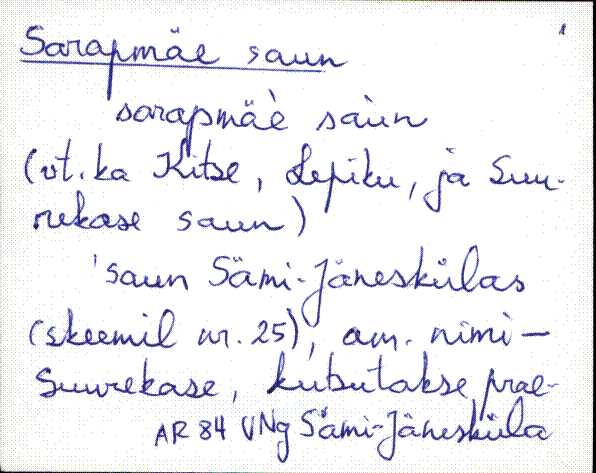 1
Sarapmäe saun
sarapmäè sàun
(vt. ka Kitse, Lepiku, ja Suu-
rekase saun)
'saun Sämi-Jäneskülas
(skeemil nr. 25), am. nimi -
Suurekase, kutsutakse prae-
AR 84 VNg Sämi-Jäneskülla